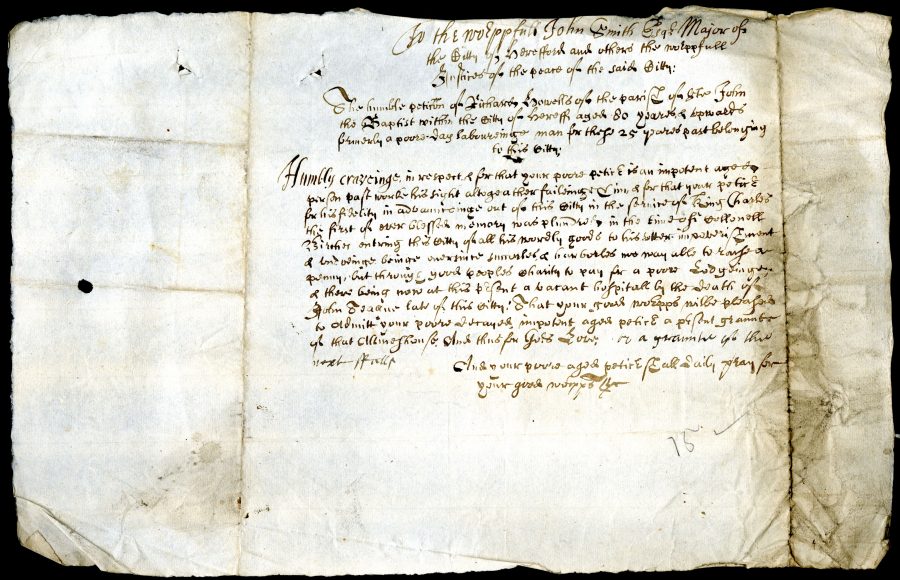 To the worppfull John Smith Esqr Major of
the Citty of Herefford and others the worppfull
Justices of the peace of the said Citty:
The humble peticon of Richard Howells of the parish of Ste John
the Baptist within the Citty of Hereff aged 80 yeares & upwards
formerly a poore day labouringe man for thes 25 yeares past belonging
to this Citty:
Humbly craveinge, in respect & for that your poore peticr is an impotent aged
person past worke his sight altogeather faileinge him & for that your peticr
for his fidelity in advanceinge out of this Citty in the service of King Charles
the first of ever blessed memory was plundred in the time of Collonell
Birther entring this Citty of all his wordly goods to his utter impoverishment
& undoeinge beinge & harborles no way able to raise a
penny, but through good peoples charity to pay for a poore Lodgeinge
& there being now at this present a vacant hospitall by the death of
John Teague late of this Citty: That your good worpps wilbe pleased
to Admitt your poore decayed impotent aged peticr a present graunte
of that Allmeshouse, And this for Gods Love, or a graunte of the
next ffalls
And your poore aged peticr shall daily pray for
your good worpps &c
15